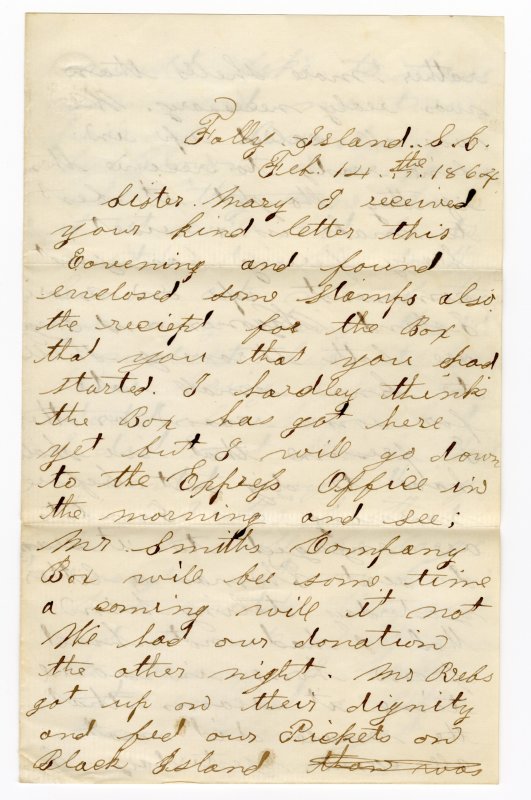 Folly. Island. S. C.
Feb. 14.th. 1864.
Sister Mary I received
your kind letter this
Eovening and found
enclosed some stamps also
the reciept for the Box
that you that you had
started. I hardley think
the Box has got here
yet but I will go down
to the Express Office in
the morning and see;
Mr Smiths Company
Box will bee some time
a coming will it not
We had our donation
the other night. Mr Rebs
got up on their dignity
and fed our Pickets on
Black Island than was